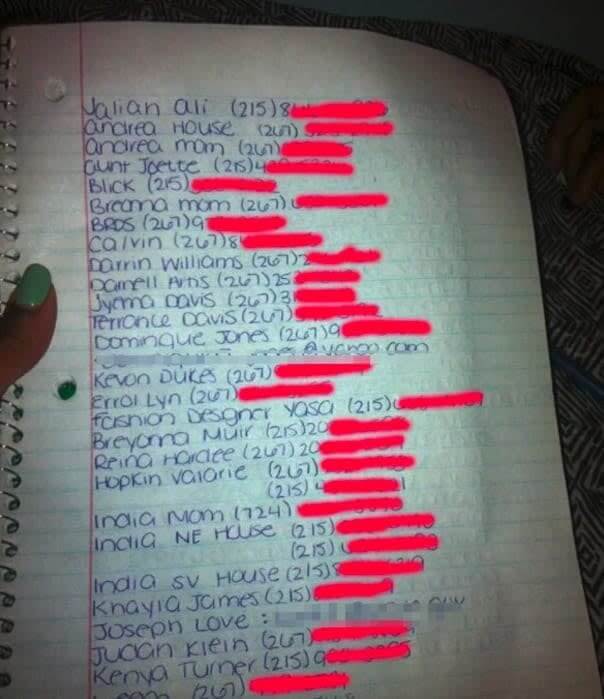 Jalian Ali (215)8
Andrea House (267)
Andrea mom (267)
Aunt Joette (215)4
Blick (215)
Breanna mom (267)
BROS (267)9
Calvin (267)8
Darrin Williams (267)2
Darnell Arns (267)25
Jyema Davis (267)3
Terrance Davis (267)
Dominque Jones (267)9
@yahoo.com
Kevon Dukes (267)
Errol Lyn (267)
Fashion Designer Yasa (215)
Breyanna Muir (215)20
Reina Hardee (267)20
Hopkin Valarie (267)
(215)
India Mom (724)
India NE House (215)
(215)
India SV House (215)
Khayla James (215)
Joseph Love :
Judan Klein (267)
Kenya Turner (215)9
(267)